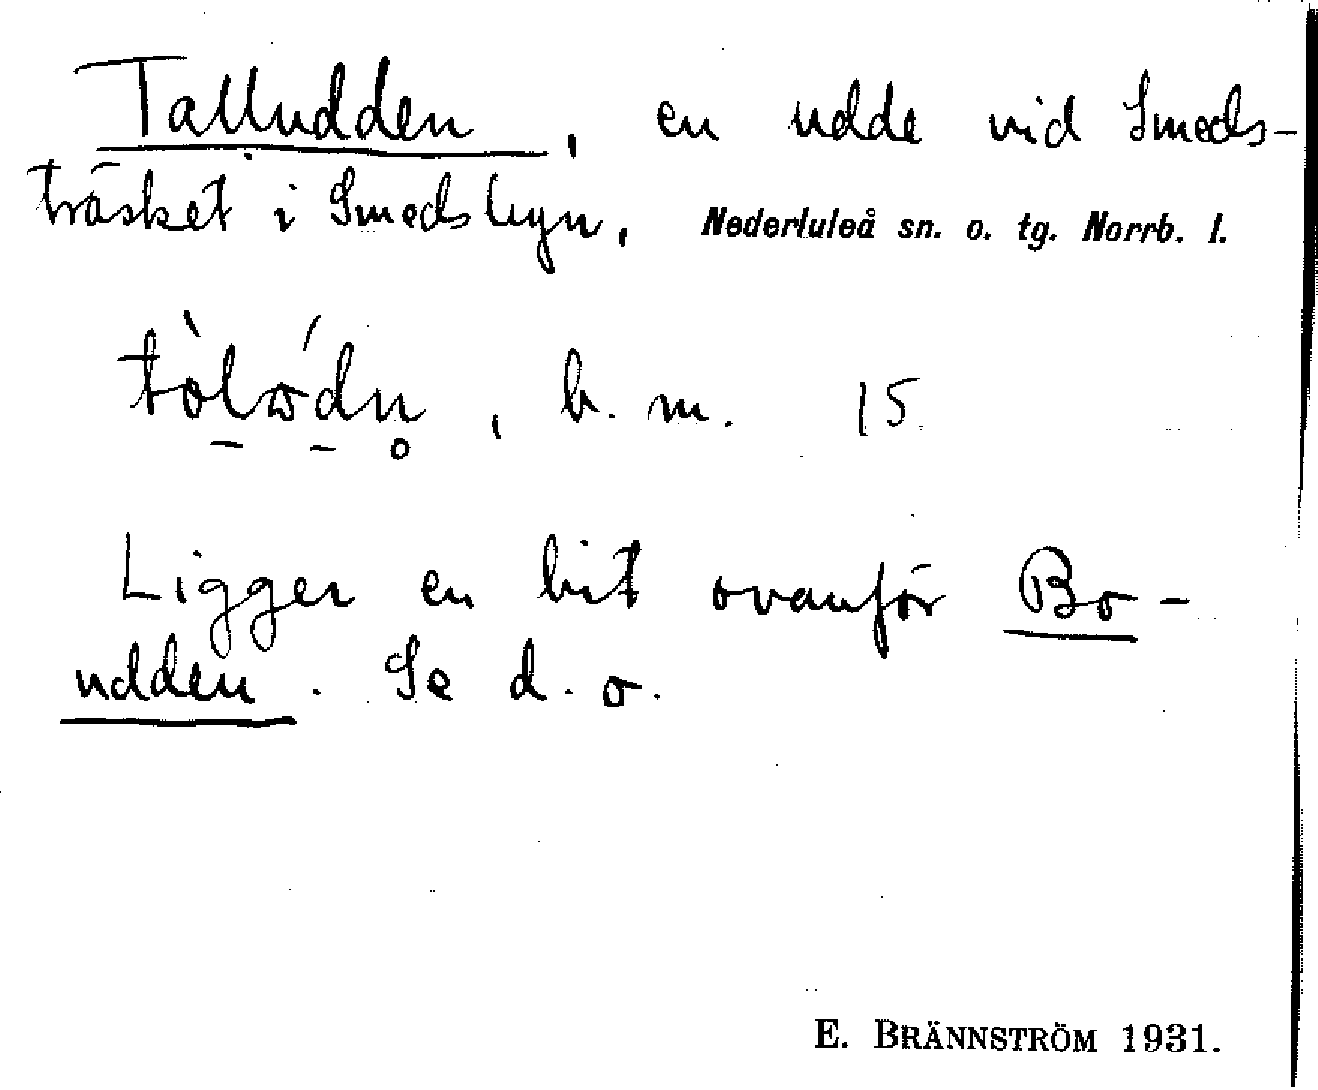 Talludden, en udde vid Smeds-
träsket i Smedsbyn, Nederluleå sn. o. tg. Norrb. l.
b. m. 15
Ligger en bit ovanför Bo-
udden. Se d. o.
E. BRÄNNSTRÖM 1931.